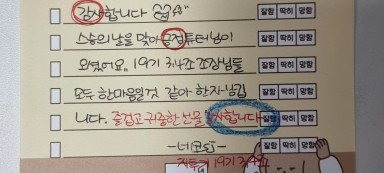 감사합니다 잘함 딱히 망함
스승의날을 맞아 튜터님이 잘함 딱히 망함
오셨어요. 19기 3,4조 조장님들 잘함 딱히 망함
모두 한마음일것 같아 한자남깁 잘함 딱히 망함
니다. 즐겁고 귀중한 선물 감사합니다 잘함 딱히 망함
잘함 딱히 망함
19기